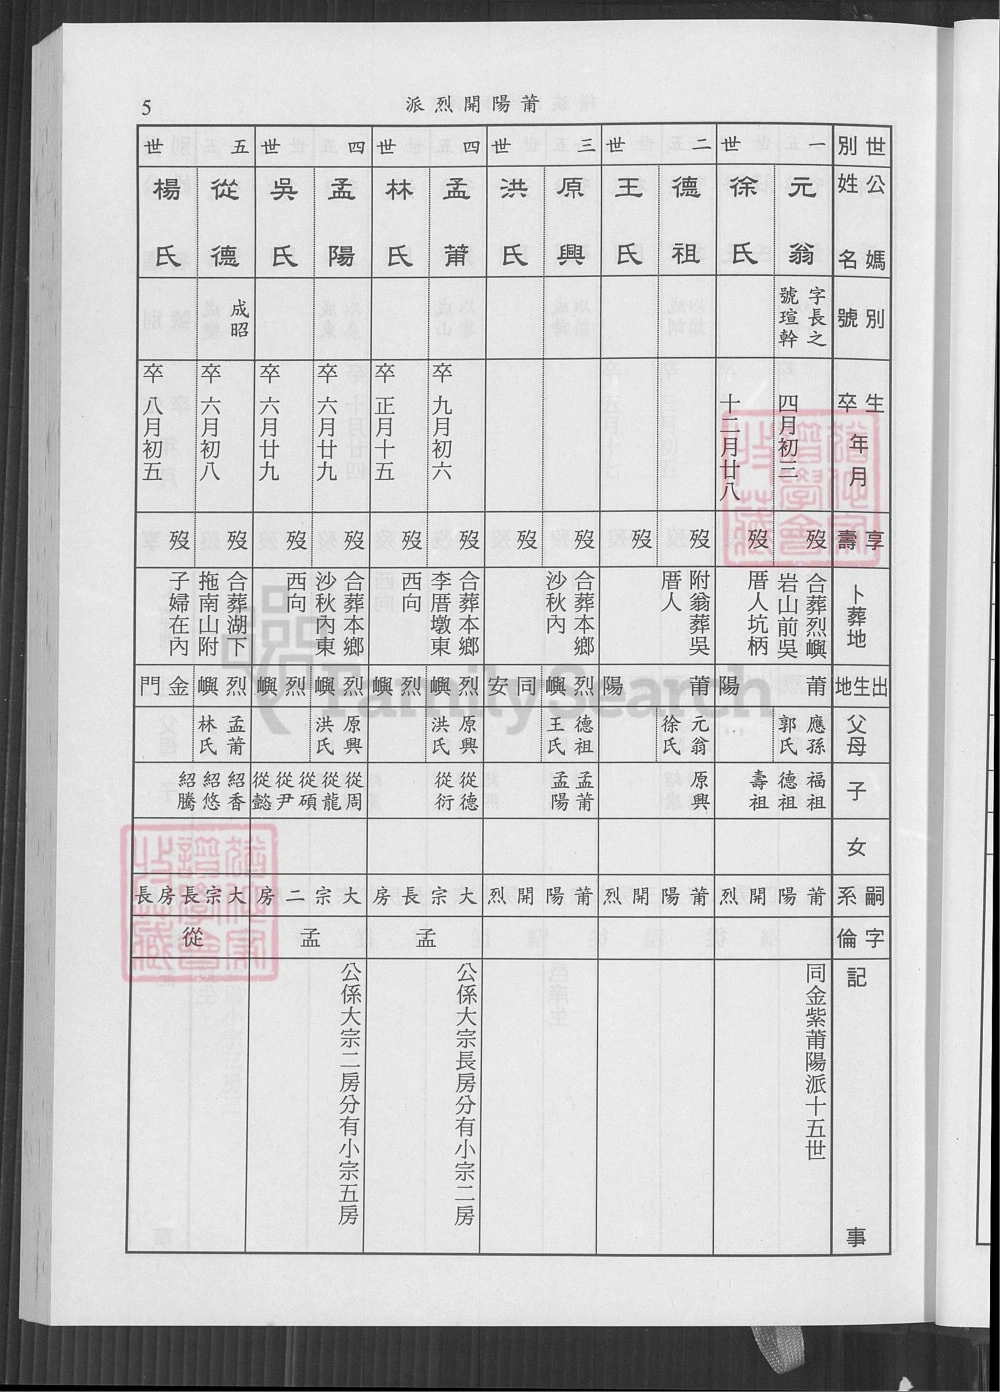 5
莆陽開烈派
世別
公媽姓名
別號
生卒年月
享壽
卜葬地
出生地
父母
子
女
嗣系
字倫
記事
一世
元翁
徐氏
字長之
號瑄幹
四月初三
十二月廿八
歿
歿
合葬烈嶼
岩山前吳
厝人坑柄
莆陽
應孫
郭氏
福祖
德祖
壽祖
莆陽開烈
同金紫莆陽派十五世
二世
德祖
王氏
歿
附翁葬吳
厝人
莆陽
元翁
徐氏
原興
莆陽開烈
三世
原興
洪氏
歿
合葬本鄉
沙秋內
烈嶼
同安
德祖
王氏
孟莆
孟陽
莆陽開烈
四世
孟莆
林氏
卒九月初六
卒正月十五
歿
歿
合葬本鄉
李厝墩東
西向
烈嶼
烈嶼
原興
洪氏
從德
從衍
大宗長房
孟
公係大宗長房分有小宗二房
四世
孟陽
吳氏
卒六月廿九
卒六月廿九
歿
歿
合葬本鄉
沙秋內東
西向
烈嶼
烈嶼
原興
洪氏
從周
從龍
從碩
從尹
從懿
大宗二房
孟
公係大宗二房分有小宗五房
五世
從德
楊氏
成昭
卒六月初八
卒八月初五
歿
歿
合葬湖下
拖南山附
子婦在內
烈嶼
金門
孟莆
林氏
紹香
紹悠
紹騰
大宗長房長
從
FamilySearch